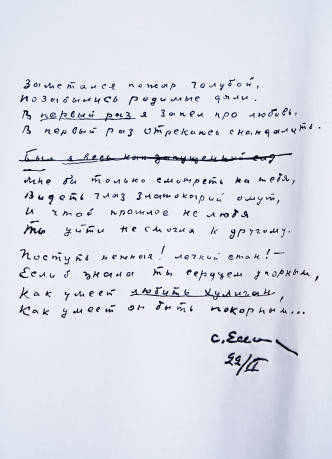 Заметался пожар голубой,
Позабылись родимые дали.
В первый раз я запел про любовь,
В первый раз отрекаюсь скандалить.
Был я весь как запущенный сад
Мне бы только смотреть на тебя,
Видеть глаз златокарий омут,
И чтоб прошлое не любя
Ты уйти не смогла к другому.
Поступь нежная! легкий стан! —
Если б знала ты сердцем упорным,
Как умеет любить хулиган,
Как умеет он быть покорным...
С. Есе
22/II